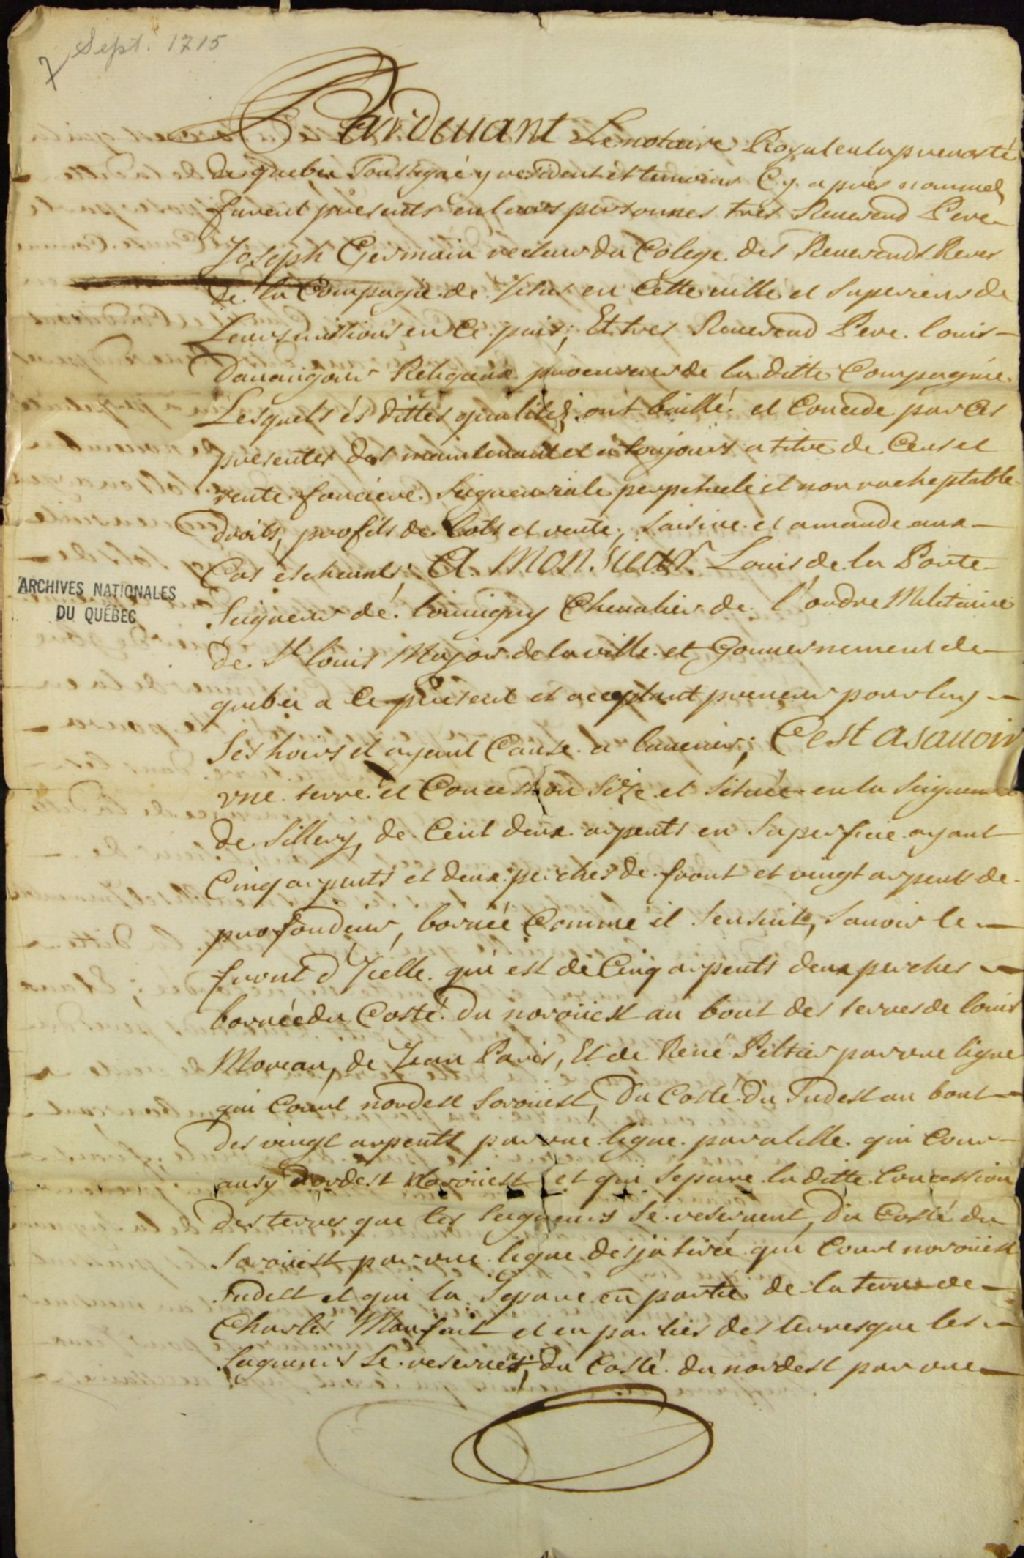 7 Sept. 1715
Pardeuant Le notaire Royal en la preuosté
de quebec Soussigné y resident et temoins Cy apres nommez
furent presents en leurs personnes tres Reuerend Pere
Joseph Germain recteur du Colege des Reuerends Peres
de la Compagie de Jesus en Cette uille et Superieur de
Leurs missions en Ce pais; Et tres Reuerend Pere louis
Dauaugour Religieux procureur de la ditte Compagnie
Lesquels és dittes qualitez ont baillé et Concede par Ces
presentes des maintenant et a toujours a titre de Cens et
rente fonciere Seigneuriale perpetuele et non racheptable
droits, profits de Lots et vente, Saisine et amande aux
Cas escheants; A Monsieur Louis de la Porte
Seigneur dé louuigny Cheualier de l'ordre Militaire
de St louis Major de la ville et Gouuernement de
quebec a Ce present et acceptant preneur pour luy
Ses hoirs et ayant Cause a lauenir; C'est asauoir
vne terre et Concession Size et Située en la Seigneurie
de Sillery, de Cent deux arpents en Superficie ayant
Cinq arpents et deux perches de front et vingt arpents de
profondeur, bornée Comme il Sensuit, Sauoir le
front d'Jcelle qui est de Cinq arpents deux perches
bornée du Costé du noroüest au bout des terres de louis
Moreau, de Jean Paris, Et de René Peltier par vne ligne
qui Court nordest Soroüest, Du Costé du Sudest au bout
des vingt arpents par vne ligne paralelle qui Cour
ausy Nordest Soroüest et qui Separe la ditte Concession
des terres que les Seigneurs Se reseruent, Du Costé du
Soroüest par vne ligne desja tirée qui Court noroüest
Sudest et qui la Separe en partie de la terre de
Charles Monfait et en parties des terres que les
Seigneurs Se reseruent, du Costé du nordest par vne
ARCHIVES NATIONALES
DU QUÉBEC